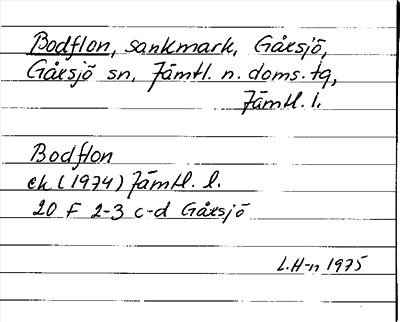 Bodflon, sankmark, Gåxsjö,
Gåxsjö sn, Jämtl. n. doms. tq,
Jämtl. l.
Bodflon
ek (1974) Jämtl. l.
20 F 2-3 c-d Gåxsjö
L.H-n 1975